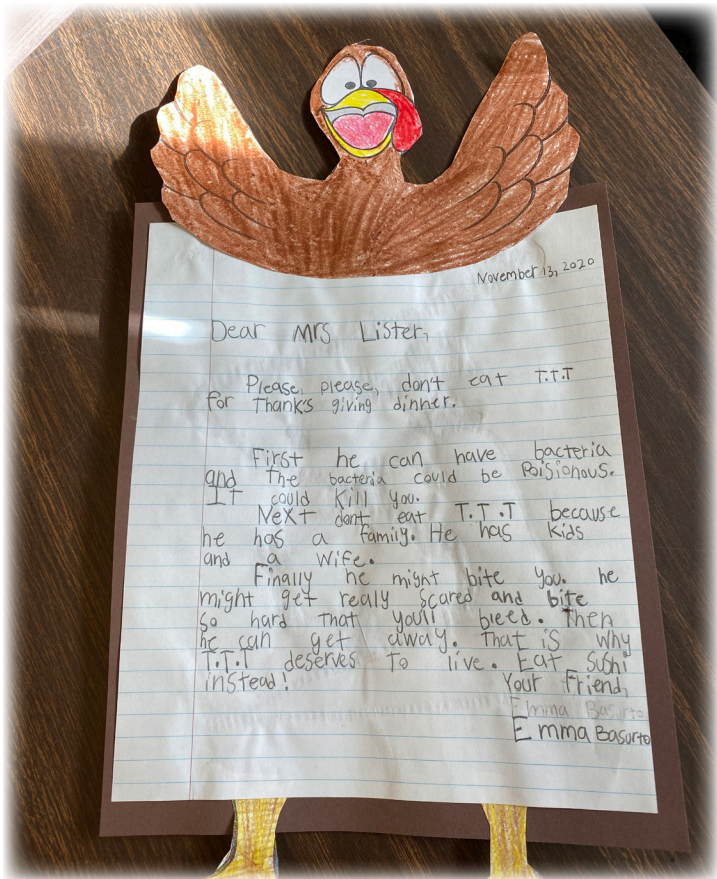 November 13, 2020
Dear Mrs Lister,
Please, please, don't eat T.T.T
for Thanks giving dinner.
First he can have bacteria
and The bacteria could be Poisionous.
IT could Kill you.
NeXT dont eat T.T.T because
he has a family. He has Kids
and a wife.
Finally he might bite you. he
might get realy scared and bite
so hard that youll bleed. Then
he can get away. That is why
T.T.T deserves To live. Eat Sushi
instead! Your Friend,
Emma Basurto
Emma Basurto